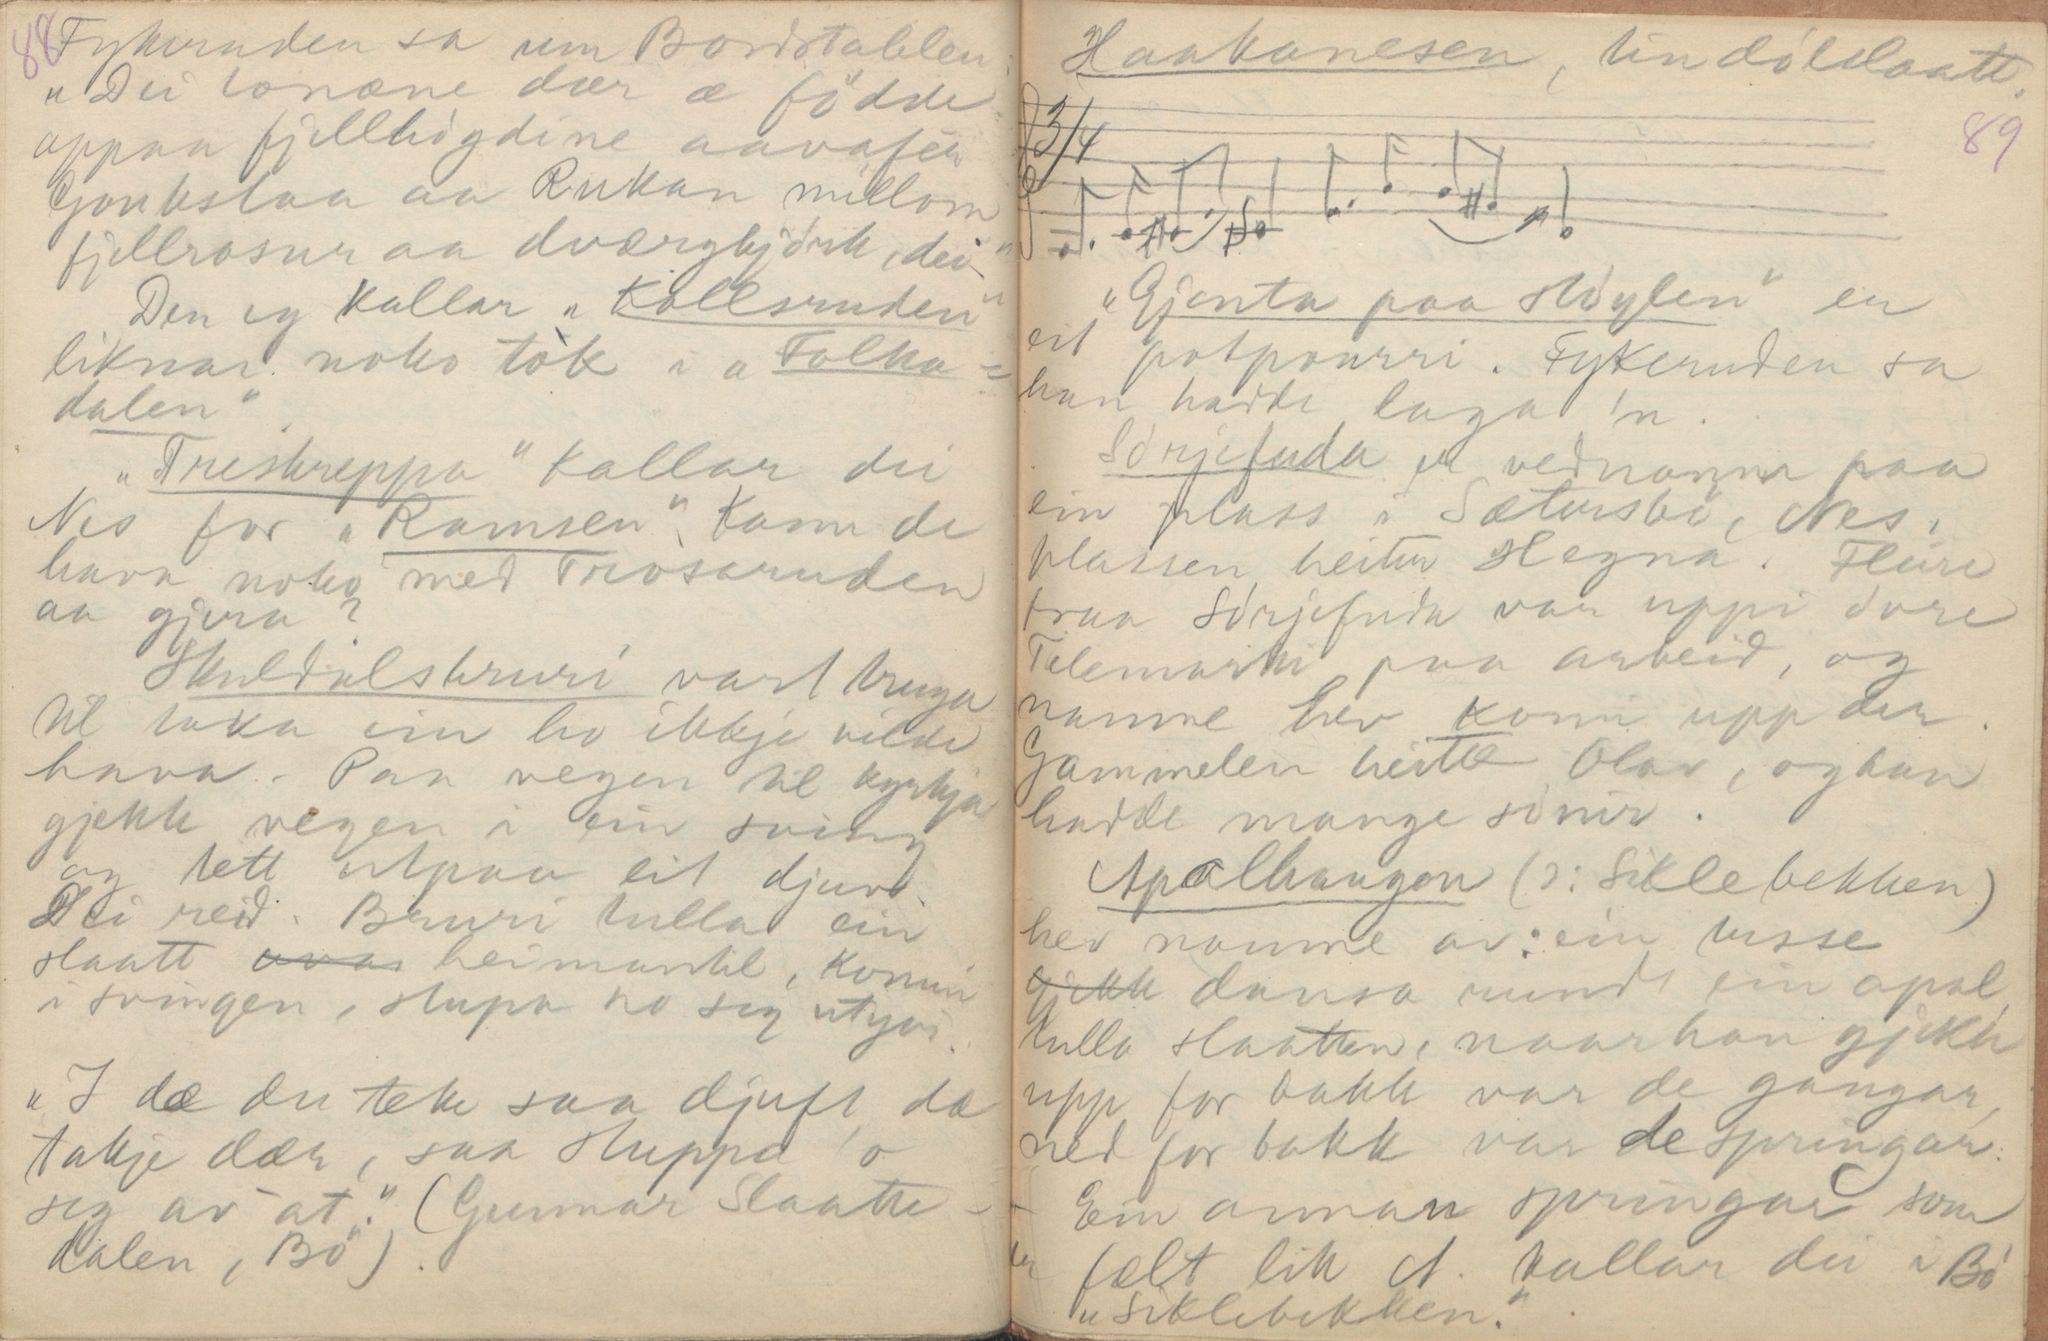 88
Fykeruden sa um Bordstabelen:
"Dei tonæne dær æ födde
oppaa fjellhögdine aavafer
Goukstaa aa Rukan millom
fjellrosur aa dværgbjörk, dei"
Den eg kallar "Kollsruden"
liknar noko tòk i "Folka=
dalen".
"Treskreppa" kallar dei
Nes for "Ramsen". Kann de
hava noko med Trosaruden
aa gjera?
Skuldalsbruri vart truga
til taka ein ho ikkje vilde
hava. Paa vegen til kyrkja
gjekk vegen i ein sving
og tett utpaa eit djuv.
Dei reid. Bruri tulla ein
slaatt heimantil, komin
i svingen, stupa ho seg utyvi.
"I dæ du teke saa djuft, dæ
takje dær, saa stuppa 'o
seg av 'at". (Gunnar Slaatte-
dalen, Bö).
Haakanesen, tindölslaatt.
89
3/4
"Gjenta paa Höglen" er
eit potpourri. Fykeruden sa
han hadde laga 'n.
Sörjefuda er vednamn paa
ein plass i Sætersbö, Nes,
plassen heiter Hegna. Fleire
fraa Sörjefuda var uppi övre
Telemarki paa arbeid, og
namne hev komi upp der.
Gammelen heitte Olav, og han
hadde mange sönir.
Apalhaugen (ɔ: Siklebekken)
hev namne av: ein tusse
gjekk dansa rundt ein apal,
tulla slaatten, naar han gjekk
upp for bakk var de gangar,
ned for bakk var de springar.
Ein annan springar som
er fælt lik A. kallar dei i Bö
"Siklebekken".